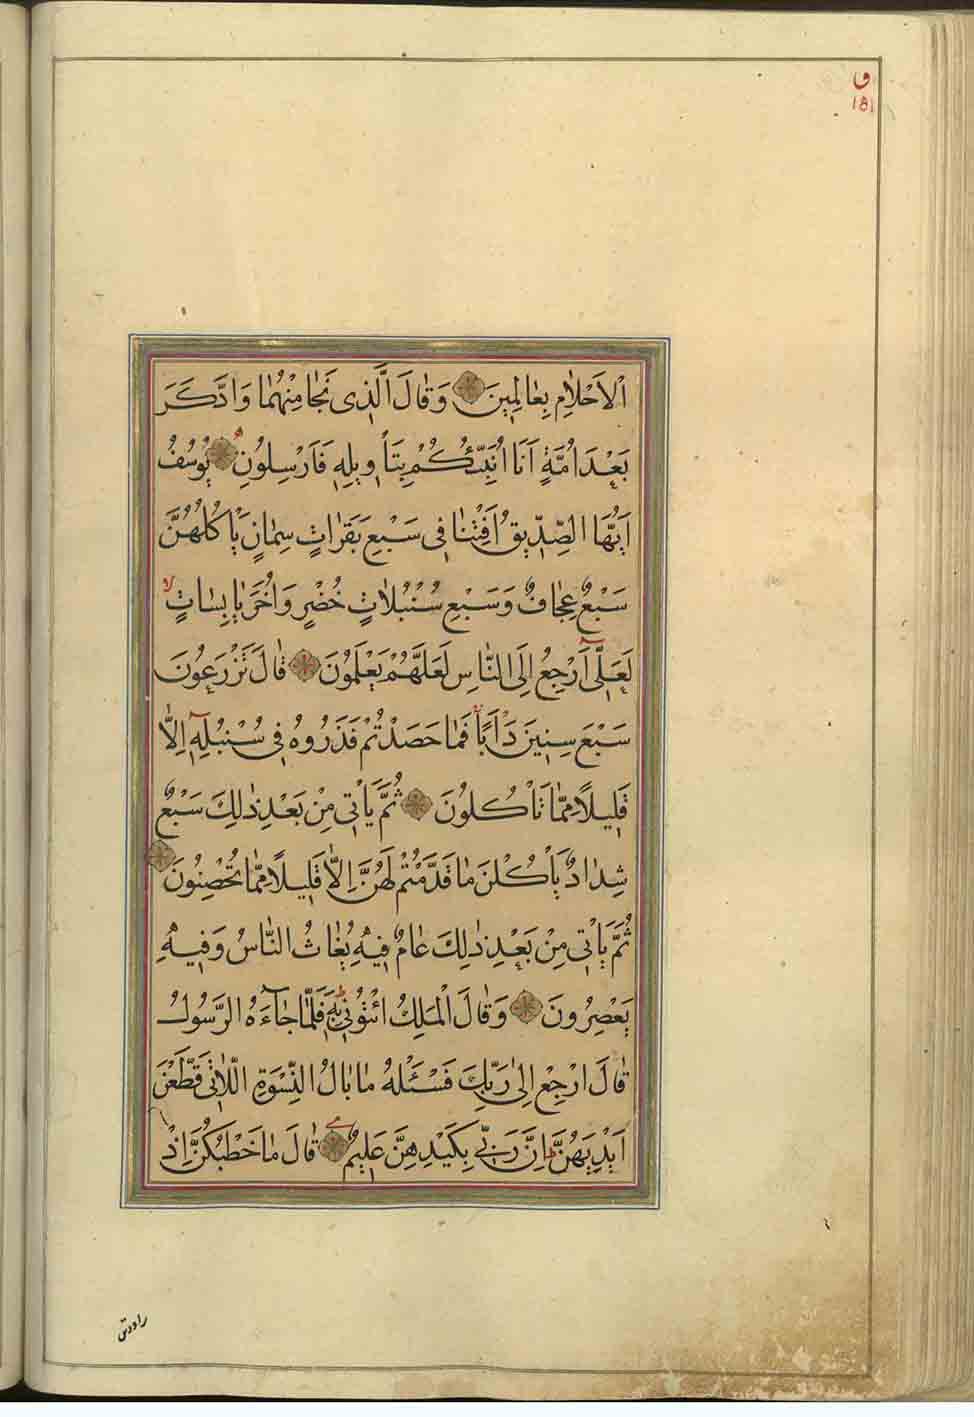 ق
١٥١
اْلاَحْلاٰمِ بِعٰالِمِينَ وَقٰالَ الَّذِى نَجٰا مِنْهُمٰا وَادَّكَرَ
بَعْدَ اُمَّةٍ اَنَا اُنَبِّئُكُمْ بِتَأْوِيلِهِ فَاَرْسِلُونِ يُوسُفُ
اَيُّهَا الصِّدِّيقُ اَفْتِنٰا فِى سَبْعِ بَقَرٰاتٍ سِمٰانٍ يَأْكُلُهُنَّ
سَبْعٌ عِجٰافٌ وَسَبْعِ سُنْبُلاٰتٍ خُضْرٍ وَاُخَرَ يٰابِسٰاتٍ لا
لَعَلِّى اَرْجِعُ اِلَى النّٰاسِ لَعَلَّهُمْ يَعْلَمُونَ قٰالَ تَزْرَعُونَ
سَبْعَ سِنِينَ دَأَبًا فَمٰا حَصَدْتُمْ فَذَرُوهُ فِى سُنْبُلِهِ اِلاّٰ
قَلِيلاً مِمّٰا تَأْكُلُونَ ثُمَّ يَأْتِى مِنْ بَعْدِ ذٰلِكَ سَبْعٌ
شِدٰادٌ يَأْكُلْنَ مٰا قَدَّمْتُمْ لَهُنَّ اِلاّٰ قَلِيلاً مِمّٰا تُحْصِنُونَ
ثُمَّ يَأْتِى مِنْ بَعْدِ ذٰلِكَ عٰامٌ فِيهِ يُغٰاثُ النّٰاسُ وَفِيهِ
يَعْصِرُونَ وَقٰالَ الْمَلِكُ ائْتُونِى بِهِ فَلَمّٰا جٰآءَهُ الرَّسُولُ
قٰالَ ارْجِعْ اِلىٰ رَبِّكَ فَسْئَلْهُ مٰا بٰالُ النِّسْوَةِ اللّٰاتِى قَطَّعْنَ
اَيْدِيَهُنَّ اِنَّ رَبِّى بِكَيْدِهِنَّ عَلِيمٌ قٰالَ مٰا خَطْبُكُنَّ اِذْ
راودتن